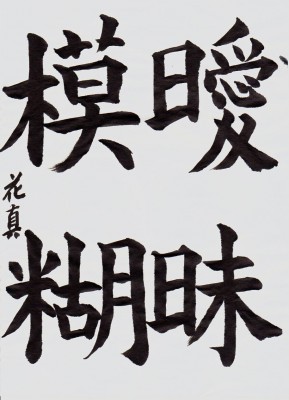 曖昧
模糊
花真